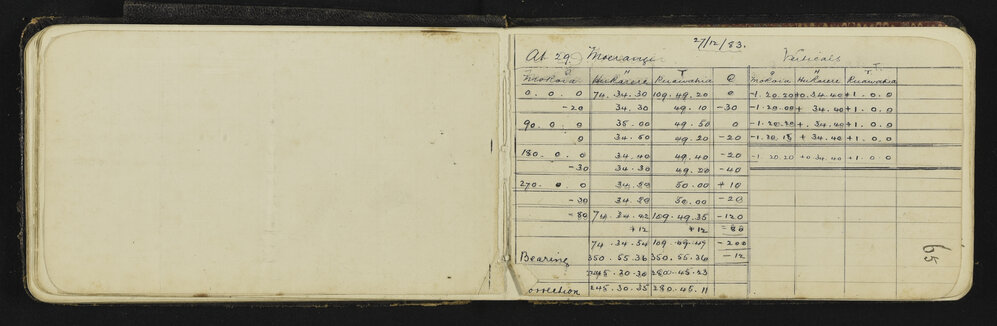 27/12/83.
At 29 Moerangi Verticals
O H T O H T
Mokoia Hukarere Ruawahia O Mokoia Hukarere Ruawahia
0. 0. 0 74. 34. 30 109. 49. 20 0 -1. 20. 20 +0. 34. 40 +1. 0. 0
-20 34. 30 49. 10 -30 -1. 20. 00 + 34. 40 +1. 0. 0
90. 0. 0 35. 00 49. 50 0 -1. 20. 20 + 34. 40 +1. 0. 0
0 34. 50 49. 20 -20 -1. 20. 15 + 34. 40 +1. 0. 0
180. 0. 0 34. 40 49. 40 -20 -1. 20. 20 +0. 34. 40 +1. 0. 0
-30 34. 30 49. 20 -40
270. 0. 0 34. 50 50. 00 +10
-30 34. 50 50. 00 -20
-80 74. 34. 42 109. 49. 35 -120
+12 +12 -80
74. 34. 54 109. 49. 47 -200
Bearing 350. 55. 36 350. 55. 36 -12
245. 30. 30 280. 45. 23
orrection 245. 30. 35 280. 45. 11
65